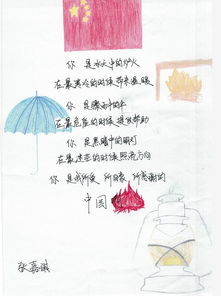 你是冰天中的炉火
在最寒冷的时候带来温暖
你是暴雨中的伞
在最危急的时候提供帮助
你是黑暗中的明灯
在最迷茫的时候照亮方向
你是我所爱 所自豪 所感谢的
中国
张嘉